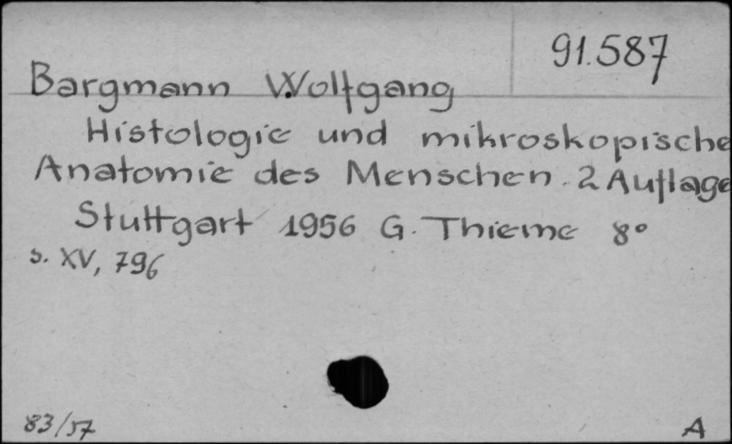 91.587
Bargmann Wolfgang
Histologie und mikroskopische
Anatomie des Menschen. 2 Auflage
Stuttgart 1956 G. Thieme 8°
s. XV, 796
83/57 A